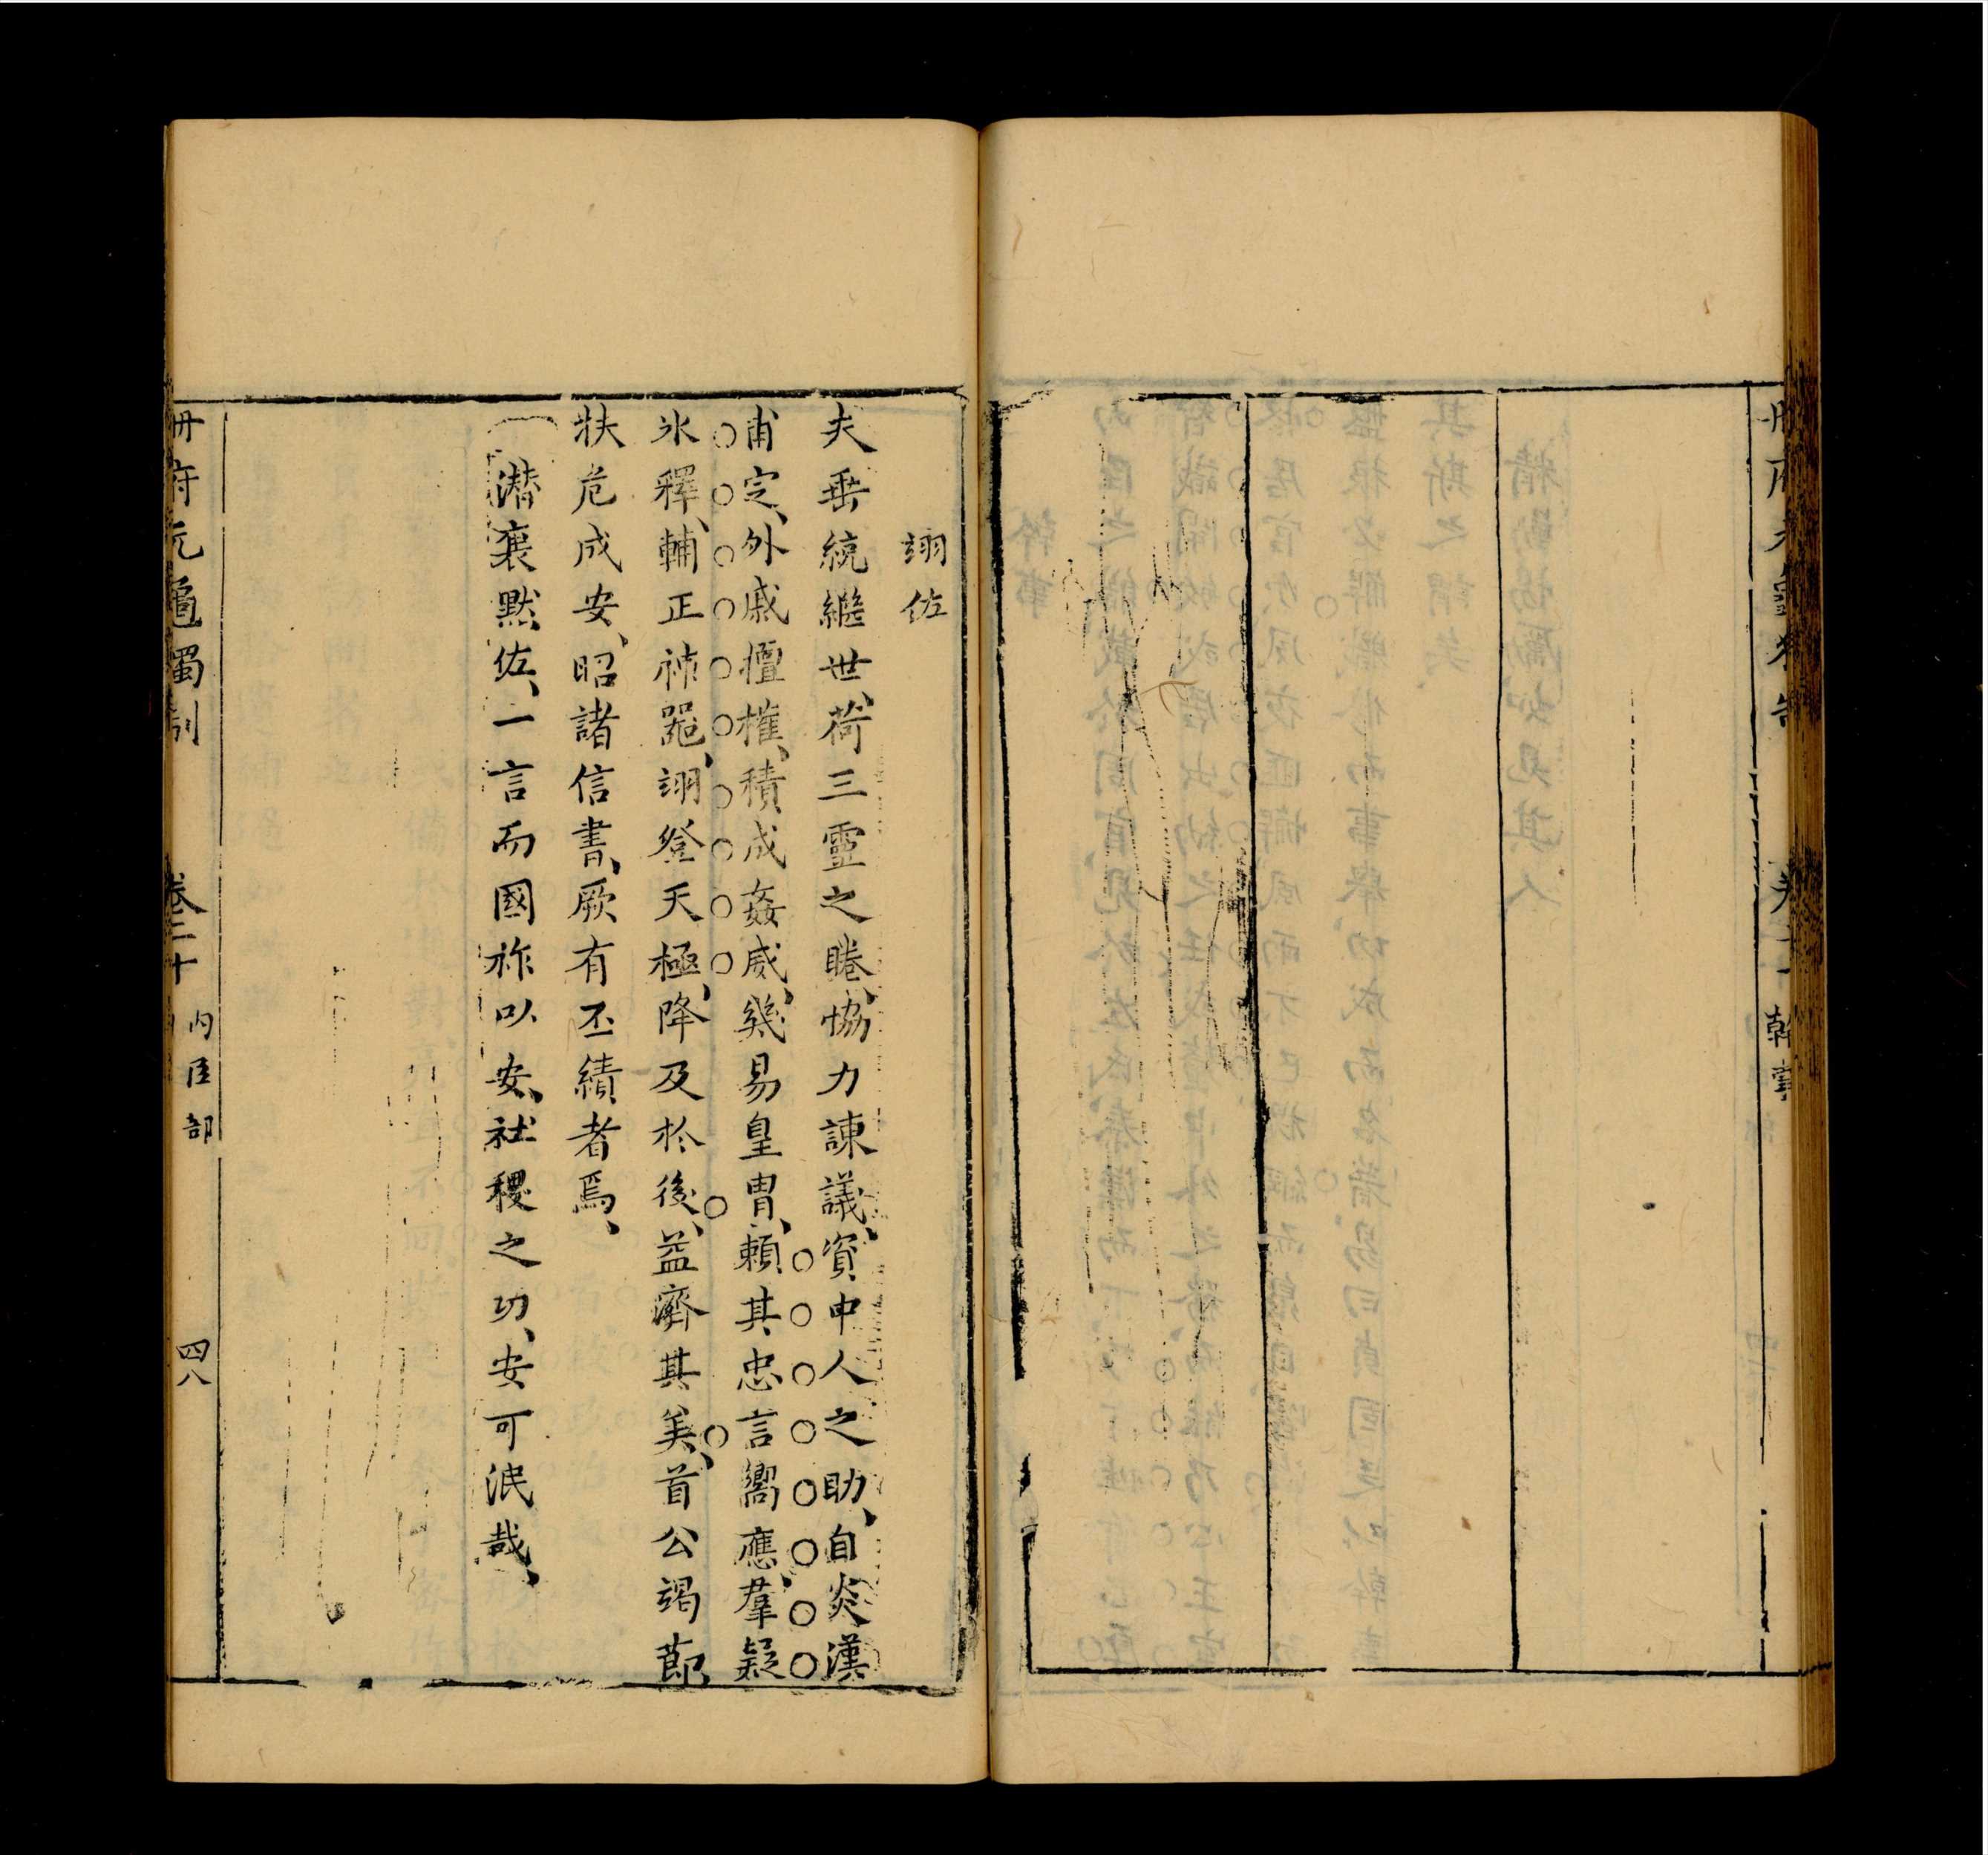 翊佐
夫垂統繼世、荷三靈之睠、恊力諫議、資中人之助、自炎漢
甫定、外戚擅權、積成姦威、幾易皇胄、賴其忠言嚮應、羣疑
氷釋、輔正神器、翊登天極、降及於後、益濟其美、首公竭節
扶危成安、昭諸信書、厥有丕績者焉、
潛襄默佐、一言而國祚以安、社稷之功、安可泯哉、
冊府元龜獨制 卷二十 內臣部 四八